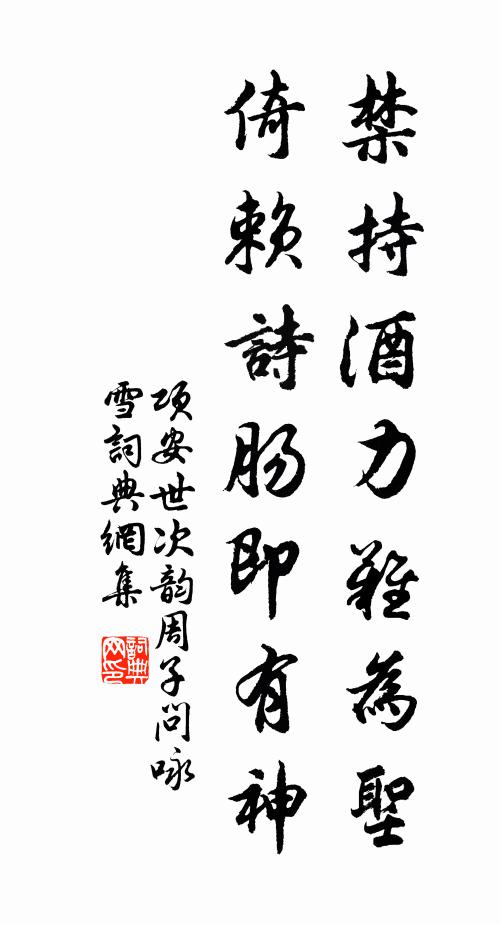 禁持酒力難為聖
倚賴詩肠即有神
项安世次韵周子问咏
雪詞典網集
詞典
网印